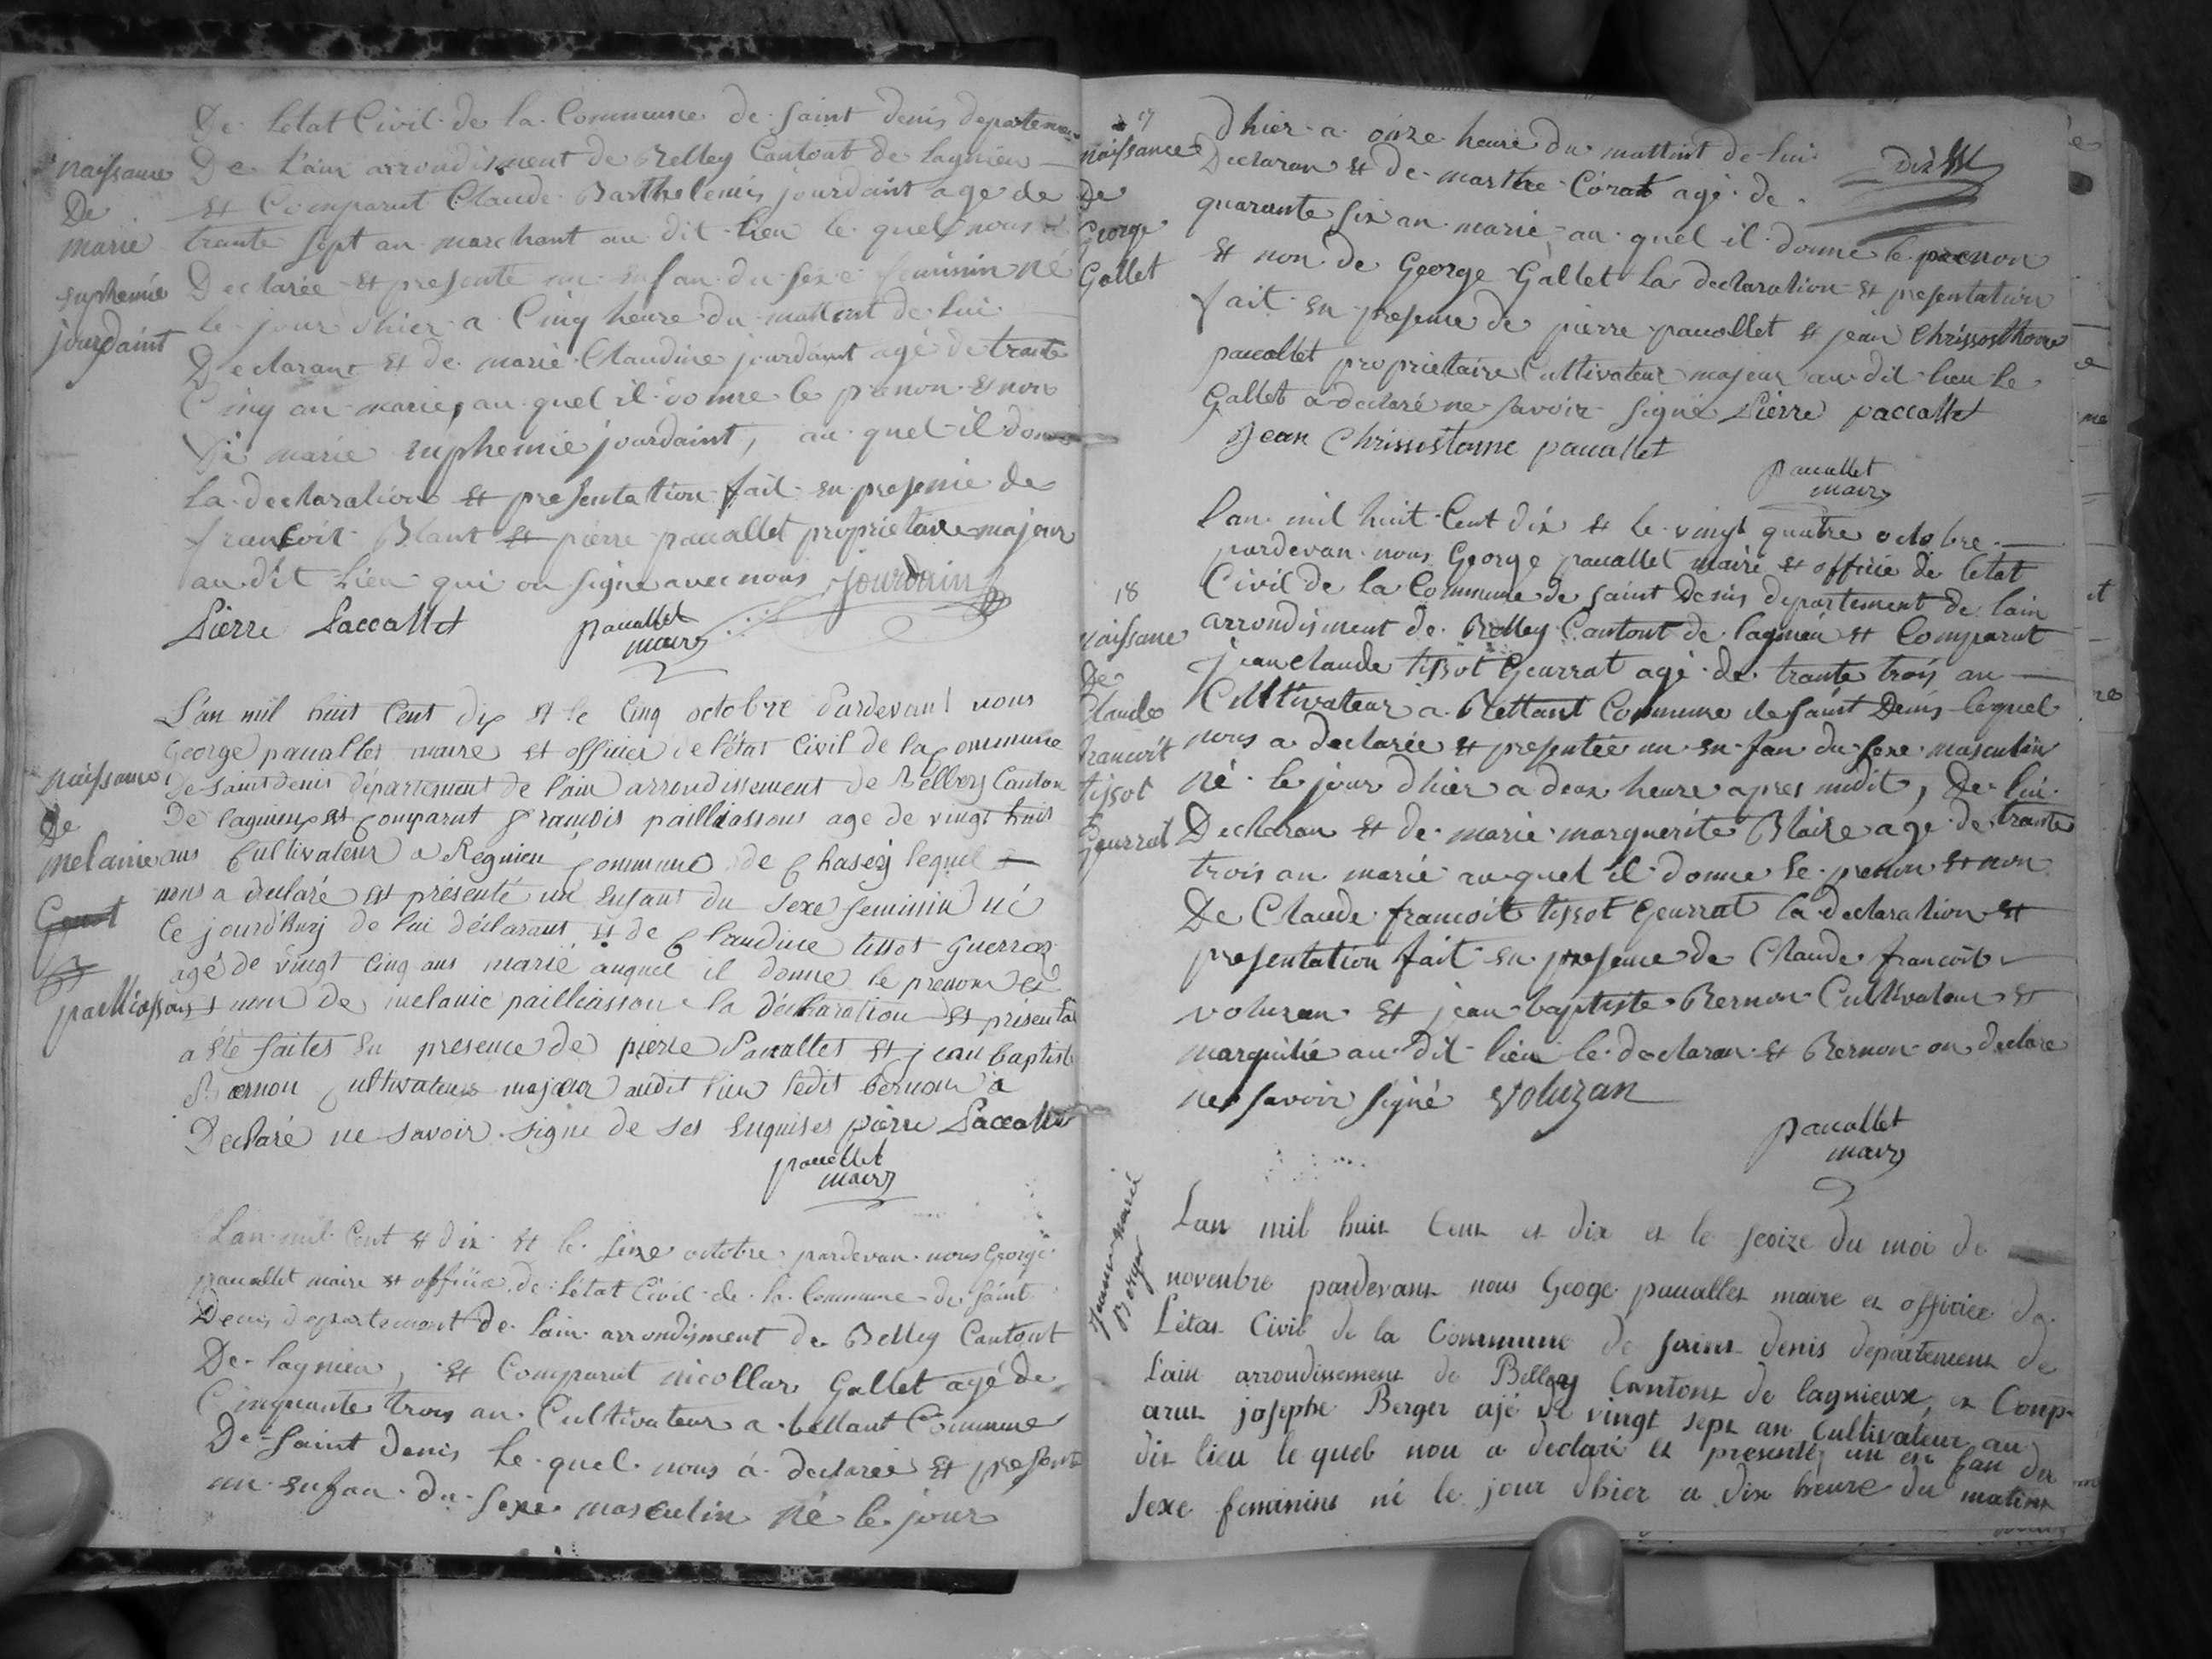 De letat Civil de la Commune de saint denis departemen
naissance
De
marie
euphemie
jourdaint
De Lain arrondisment de Belley Cantont de lagnieu
Et Comparut Claude Barthelemis jourdaint age de
trante sept an marchant au dit lieu le quel nous a
Declarée et presenté un enfan du sexe feminin né
le jour dhier a Cinq heure du mattint de lui
Declarant et de marie Claudine jourdaint agé de trante
Cinq an marie, au quel il donne le prenon et non
Di marie euphemie jourdaint, au quel il donne
la declaration et presentation fait en presence de
francoit Blant et pierre pacallet proprietaire majeur
au dit lieu qui on signe avec nous jourdain
Pierre Paccallet
pacallet
maire
naissance
De
melanie
paillassous
L'an mil huit Cent dix et le Cinq octobre Pardevant nous
George pacallet maire et officier de l'état Civil de la Commune
de saint denis département de l'ain arrondissement de Belley Canton
De lagnieu et Comparut François pailliassous age de vingt huit
ans Cultivateur a Regnieu Commune de Chaseÿ lequel
nous a declaré et présenté un enfant du sexe feminin né
Ce jourd'huy de lui déclarant et de Claudine tissot Guerraz
agé de vingt Cinq ans marié auquel il donne le prenom et
nom de melanie pailliasson la déclaration et présenta
a été faites en presence de pierre Pacallet et jean baptiste
Bernon Cultivateurs majeur audit lieu ledit bernon a
Declaré ne savoir signé de ses enquises pierre Paccallet
pacallet
maire
Lan mil Cent et dix et le seize octobre pardevan nous George
pacallet maire et officié de létat Civil de la Commune de saint
Denis departement de Lain arrondisment de Belley Cantont
De lagnieu, et Comparut nicollas Gallet agé de
Cinquante trois an Cultivateur a bettant Commune
De saint denis le quel nous á declareé et presenté
un enfan du sexe masculin né le jour
17
naissance
De
George
Gallet
dhier a onze heure du mattint de lui
Declaran et de marthe Corat agé de
quarante six an marie, au quel il donne le prenon
et non de George Gallet la declaration et presentation
fait en presence de pierre pacallet et jean Chrissosthome
pacallet proprietaire Cultivateur majeur au dit lieu le
Gallet a declaré ne savoir signé Pierre paccallet
Jean Chrissostome pacallet
pacallet
maire
18
naissance
De
Claude
francoit
tissot
Geurrat
Lan mil huit Cent dix et le vingt quatre octobre
pardevan nous George pacallet maire et officié de letat
Civil de la Commune de saint Denis departement de lain
arrondisment de Belley Cantont de lagnieu et Comparut
jean claude tissot Geurrat agé de trante trois an
Cultivateur a Bettant Commune de saint Denis lequel
nous a declarée et presentée un en fan du sexe masculin
né le jour dhier a deux heure apres midit, De lui
Declaran et de marie marguerite Blaise age de trante
trois an marié au quel il donne le prenon et non
De Claude francoit tissot Geurrat la declaration et
presentation fait en presence de Claude francoit
voluzan et jean baptiste Bernon Cultivateur et
marguilié au dit lieu le declaran et Bernon on declare
ne savoir signé Voluzan
pacallet
maire
Jeanne marie
Berger
Lan mil huit Cent et dix et le seoize du moi de
novembre pardevant nous Geoge pacallet maire et officiée de
Létat Civil de la Commune de saint denis departement de
Lain arrondissement de Belley Cantont de lagnieux, et Comp-
arut josephe Berger ajé de vingt sept an Cultivateur au
dit lieu le queb nou a declaré et presenté un en fan du
sexe feminint né le jour dhier a dix heure du matint